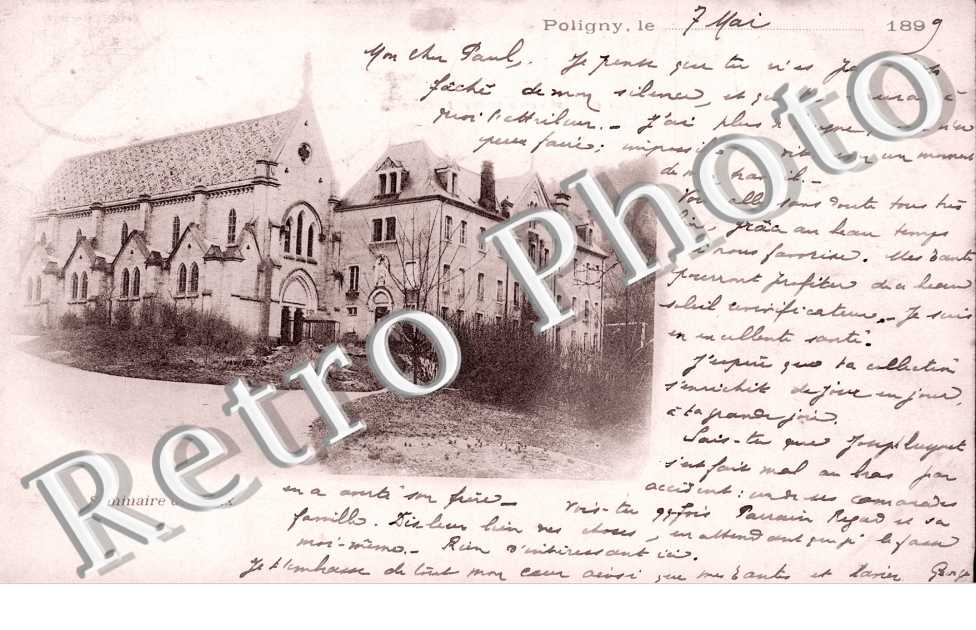 Poligny, le 7 Mai 1899
Mon cher Paul, Je pense que tu n'es pas
fâché de mon silence, et que tu sauras à
quoi l'attribuer. - J'ai plus
peu faire; impossible un moment
de mon travail. -
Vous allez sans doute tous très
bien, grâce au beau temps
nous favorise. Mes Tantes
pourront profiter de ce beau
soleil. Je suis
en excellente santé.
J'espère que ta collection
s'enrichit de jour en jour,
à ta grande joie.
Sais-tu que Joseph
s'est fait mal au bras par
accident: un de ses camarades
en a averti son frère -
Vois-tu qqfois Parrain Rigad et sa
famille. Dis leur bien des choses, en attendant que je le fasse
moi-même. - Rien d'intéressant ici.
Je t'embrasse de tout mon cœur ainsi que mes Tantes et Xavier
Séminaire de
Retro Photo